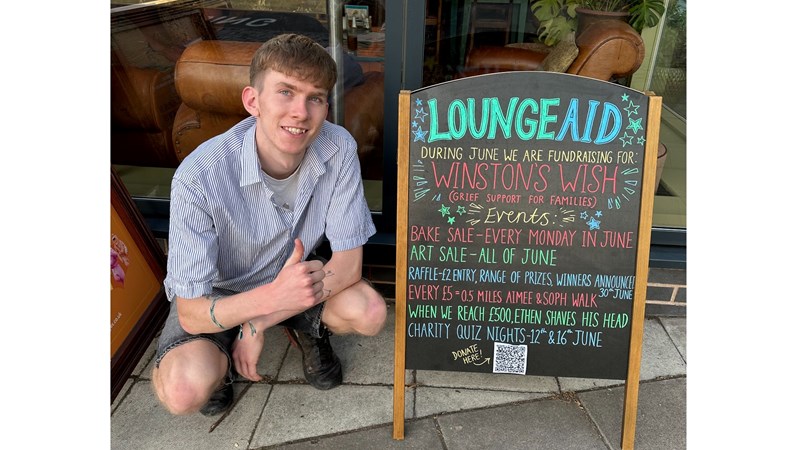 LOUNGEAID
DURING JUNE WE ARE FUNDRAISING FOR:
WINSTON'S WISH
(GRIEF SUPPORT FOR FAMILIES)
Events:
BAKE SALE - EVERY MONDAY IN JUNE
ART SALE - ALL OF JUNE
RAFFLE - £2 ENTRY, RANGE OF PRIZES, WINNERS ANNOUNCED
30TH JUNE
EVERY £5 = 0.5 MILES AIMEE & SOPH WALK
WHEN WE REACH £500, ETHEN SHAVES HIS HEAD
CHARITY QUIZ NIGHTS - 12th & 16th JUNE
DONATE
HERE!